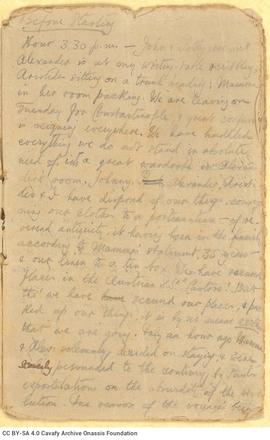 Before Starting
Hour 3.30 p.m. — John is
Alexander is at my writing table scribbling,
Aristides sitting on a trunk reading; Mamma
in her room packing. We are leaving on
Tuesday for Constantinople & great confusion
is reigning everywhere. We have
everything we do not stand in absolute
need of in a great wardrobe in
dick's room. Johnny, Alexander,
& I have disposed of our things
our clothes to a portmanteau of
antiquity, it having been in the family
according to Mamma's statement, 35 years
& our linen to a tin box. We have secured
places in the Austrian SS. But
tho' we have secured our places, & pack-
ed up our things, it is by no means certain
that we are going. Half an hour ago Mamma
& Alex. solemnly decided on staying &
persuaded to the contrary by Paul's
expostulations on the absurdity of the
lution. The reason of the voyage
CC BY-SA 4.0 Cavafy Archive Onassis Foundation